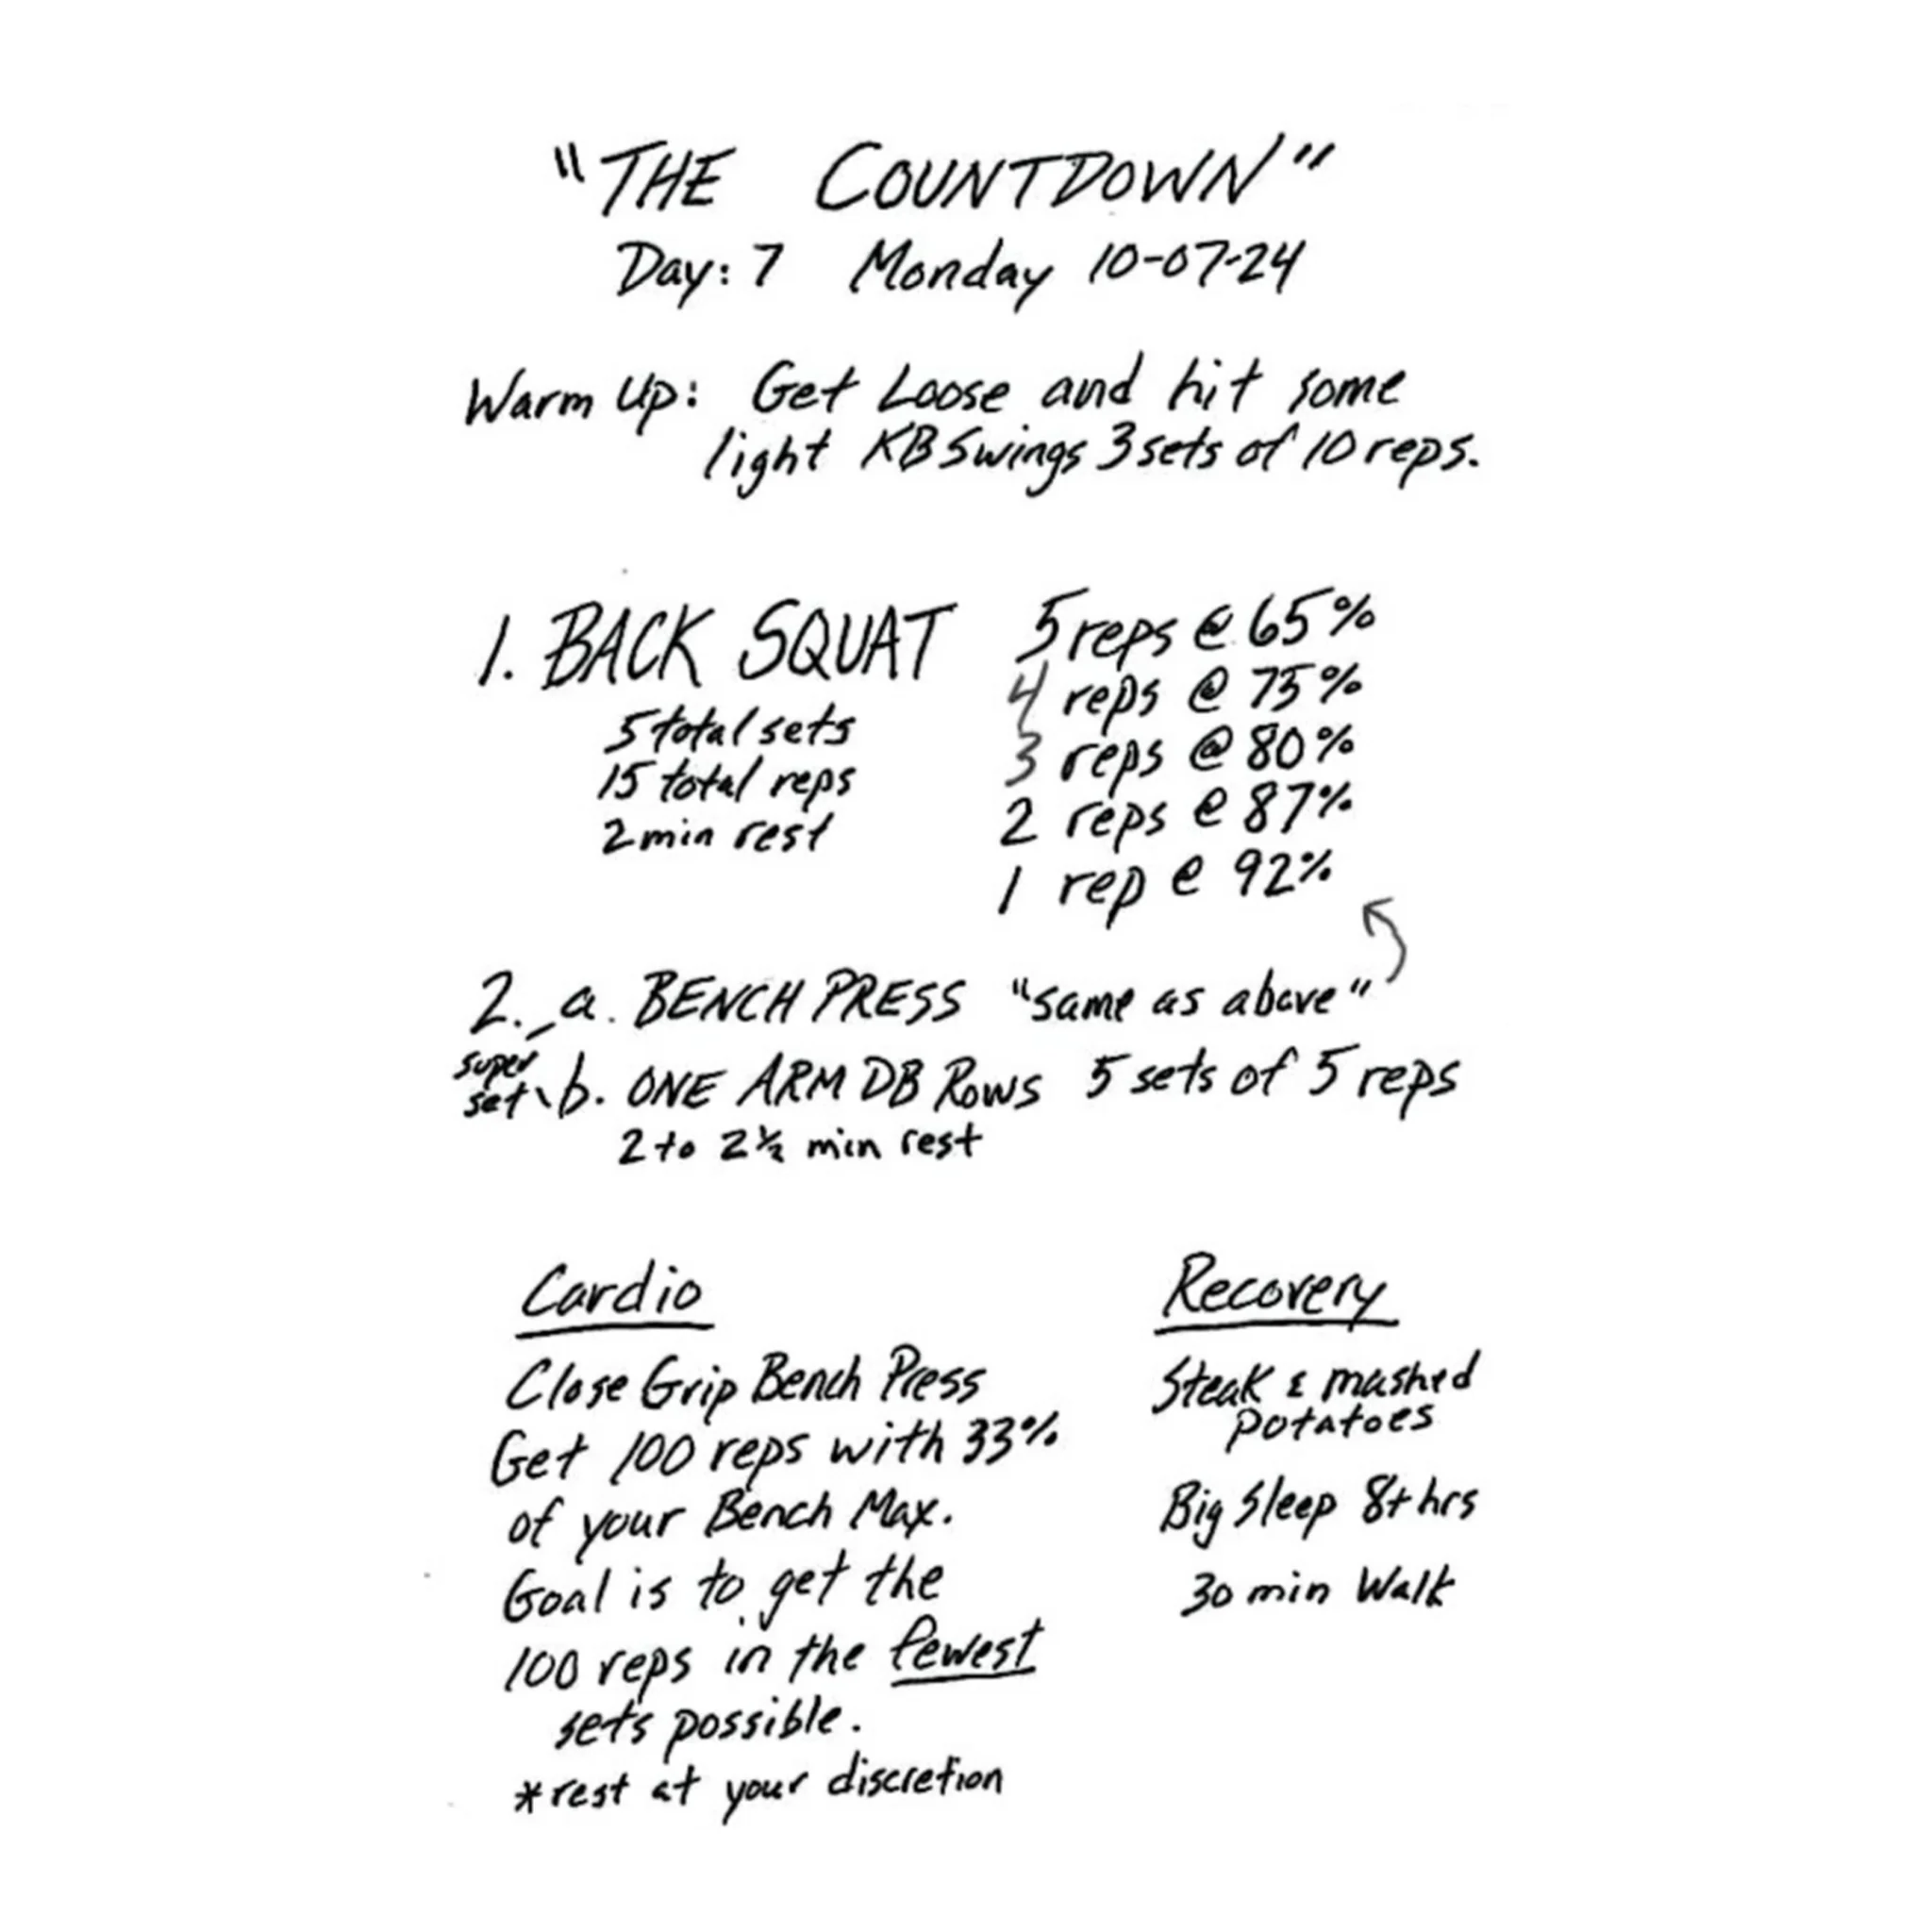 "THE COUNTDOWN"
Day: 7 Monday 10-07-24
Warm Up: Get Loose and hit some
light KB Swings 3 sets of 10 reps.
1. BACK SQUAT
5 total sets
15 total reps
2 min rest
5 reps @ 65%
4 reps @ 75%
3 reps @ 80%
2 reps @ 87%
1 rep @ 92%
2. a. BENCH PRESS "same as above"
super
set b. ONE ARM DB Rows 5 sets of 5 reps
2 to 2 1/2 min rest
Cardio
Close Grip Bench Press
Get 100 reps with 33%
of your Bench Max.
Goal is to get the
100 reps in the fewest
sets possible.
*rest at your discretion
Recovery
Steak & mashed
potatoes
Big Sleep 8+ hrs
30 min Walk